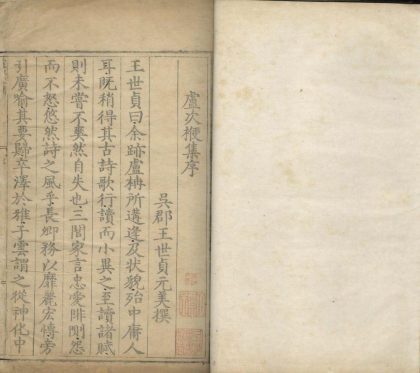 盧次楩集序
吳郡王世貞元美撰
王世貞曰余跡盧柟所遘逢及狀貌殆中庸人
耳既稍得其古詩歌行讀而小異之至讀諸賦
則未嘗不爽然自失也三閭家言忠愛悱惻怨
而不怒悠然詩之風乎長卿務以靡麗宏博旁
引廣喻其要歸立澤於雅子雲謂之從神化中